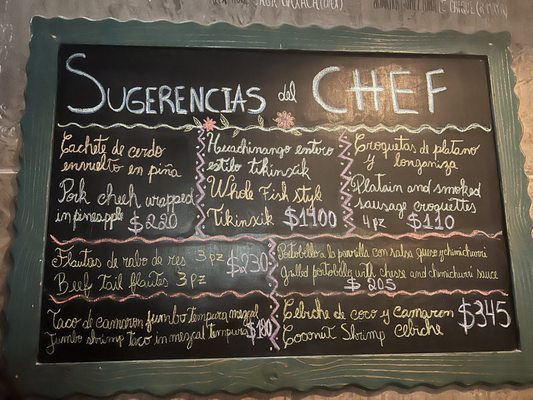 SUGERENCIAS del CHEF
Cachete de cerdo
envuelto en piña
Pork cheeh wrapped
in pineapple $220
Huachinango entero
estilo tikinxik
Whole Fish style
Tikinxik $1400
Croquetas de platano
y longaniza
Platain and smoked
sausage croquettes
4 pz $110
Flautas de rabo de res 3 pz
Beef Tail flautes 3 pz
$230
Portobello a la parrilla con salsa queso y chimichurri
Grilled portobello with chesse and chimichurri sauce
$ 205
Taco de camaron jumbo tempura mezcal
Jumbo shrimp taco in mezcal tempura $180
Cebiche de coco y camaron
Coconut Shrimp cebiche
$345